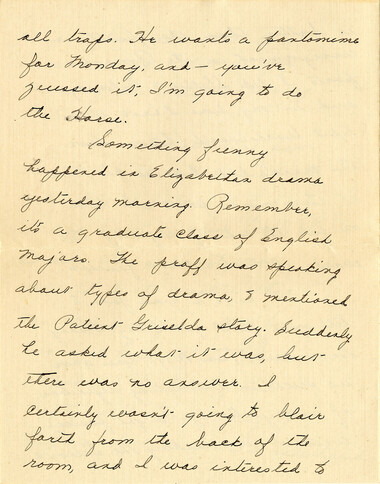 all traps. He wants a pantomime
for Monday, and — you've
guessed it, I'm going to do
the Horse.
Something funny
happened in Elizabethan drama
yesterday morning. Remember,
it's a graduate class of English
Majors. The proff was speaking
about types of drama, & mentioned
the Patient Griselda story. Suddenly
he asked what it was, but
there was no answer. I
certainly wasn't going to blair
forth from the back of the
room, and I was interested to